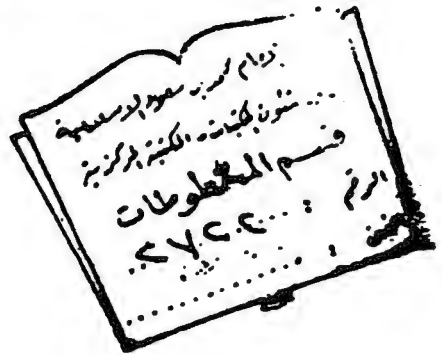 الإمام محمد بن سعود الإسلامية
شئون المكتبات - المكتبة المركزية
قسم المخطوطات
الرقم : ٢٧٢٢